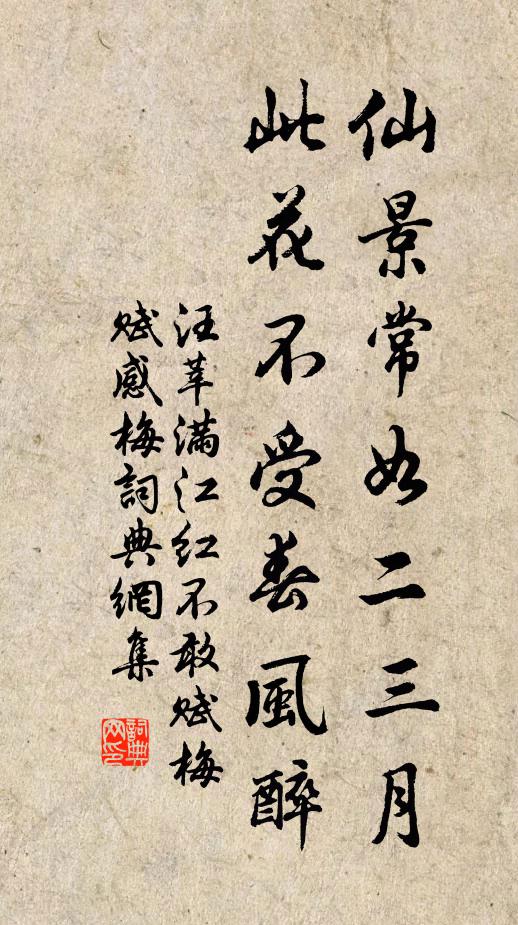 仙景常如二三月
此花不受春風醉
汪莘滿江紅不敢賦梅
賦感梅詞典網集
詞典網印